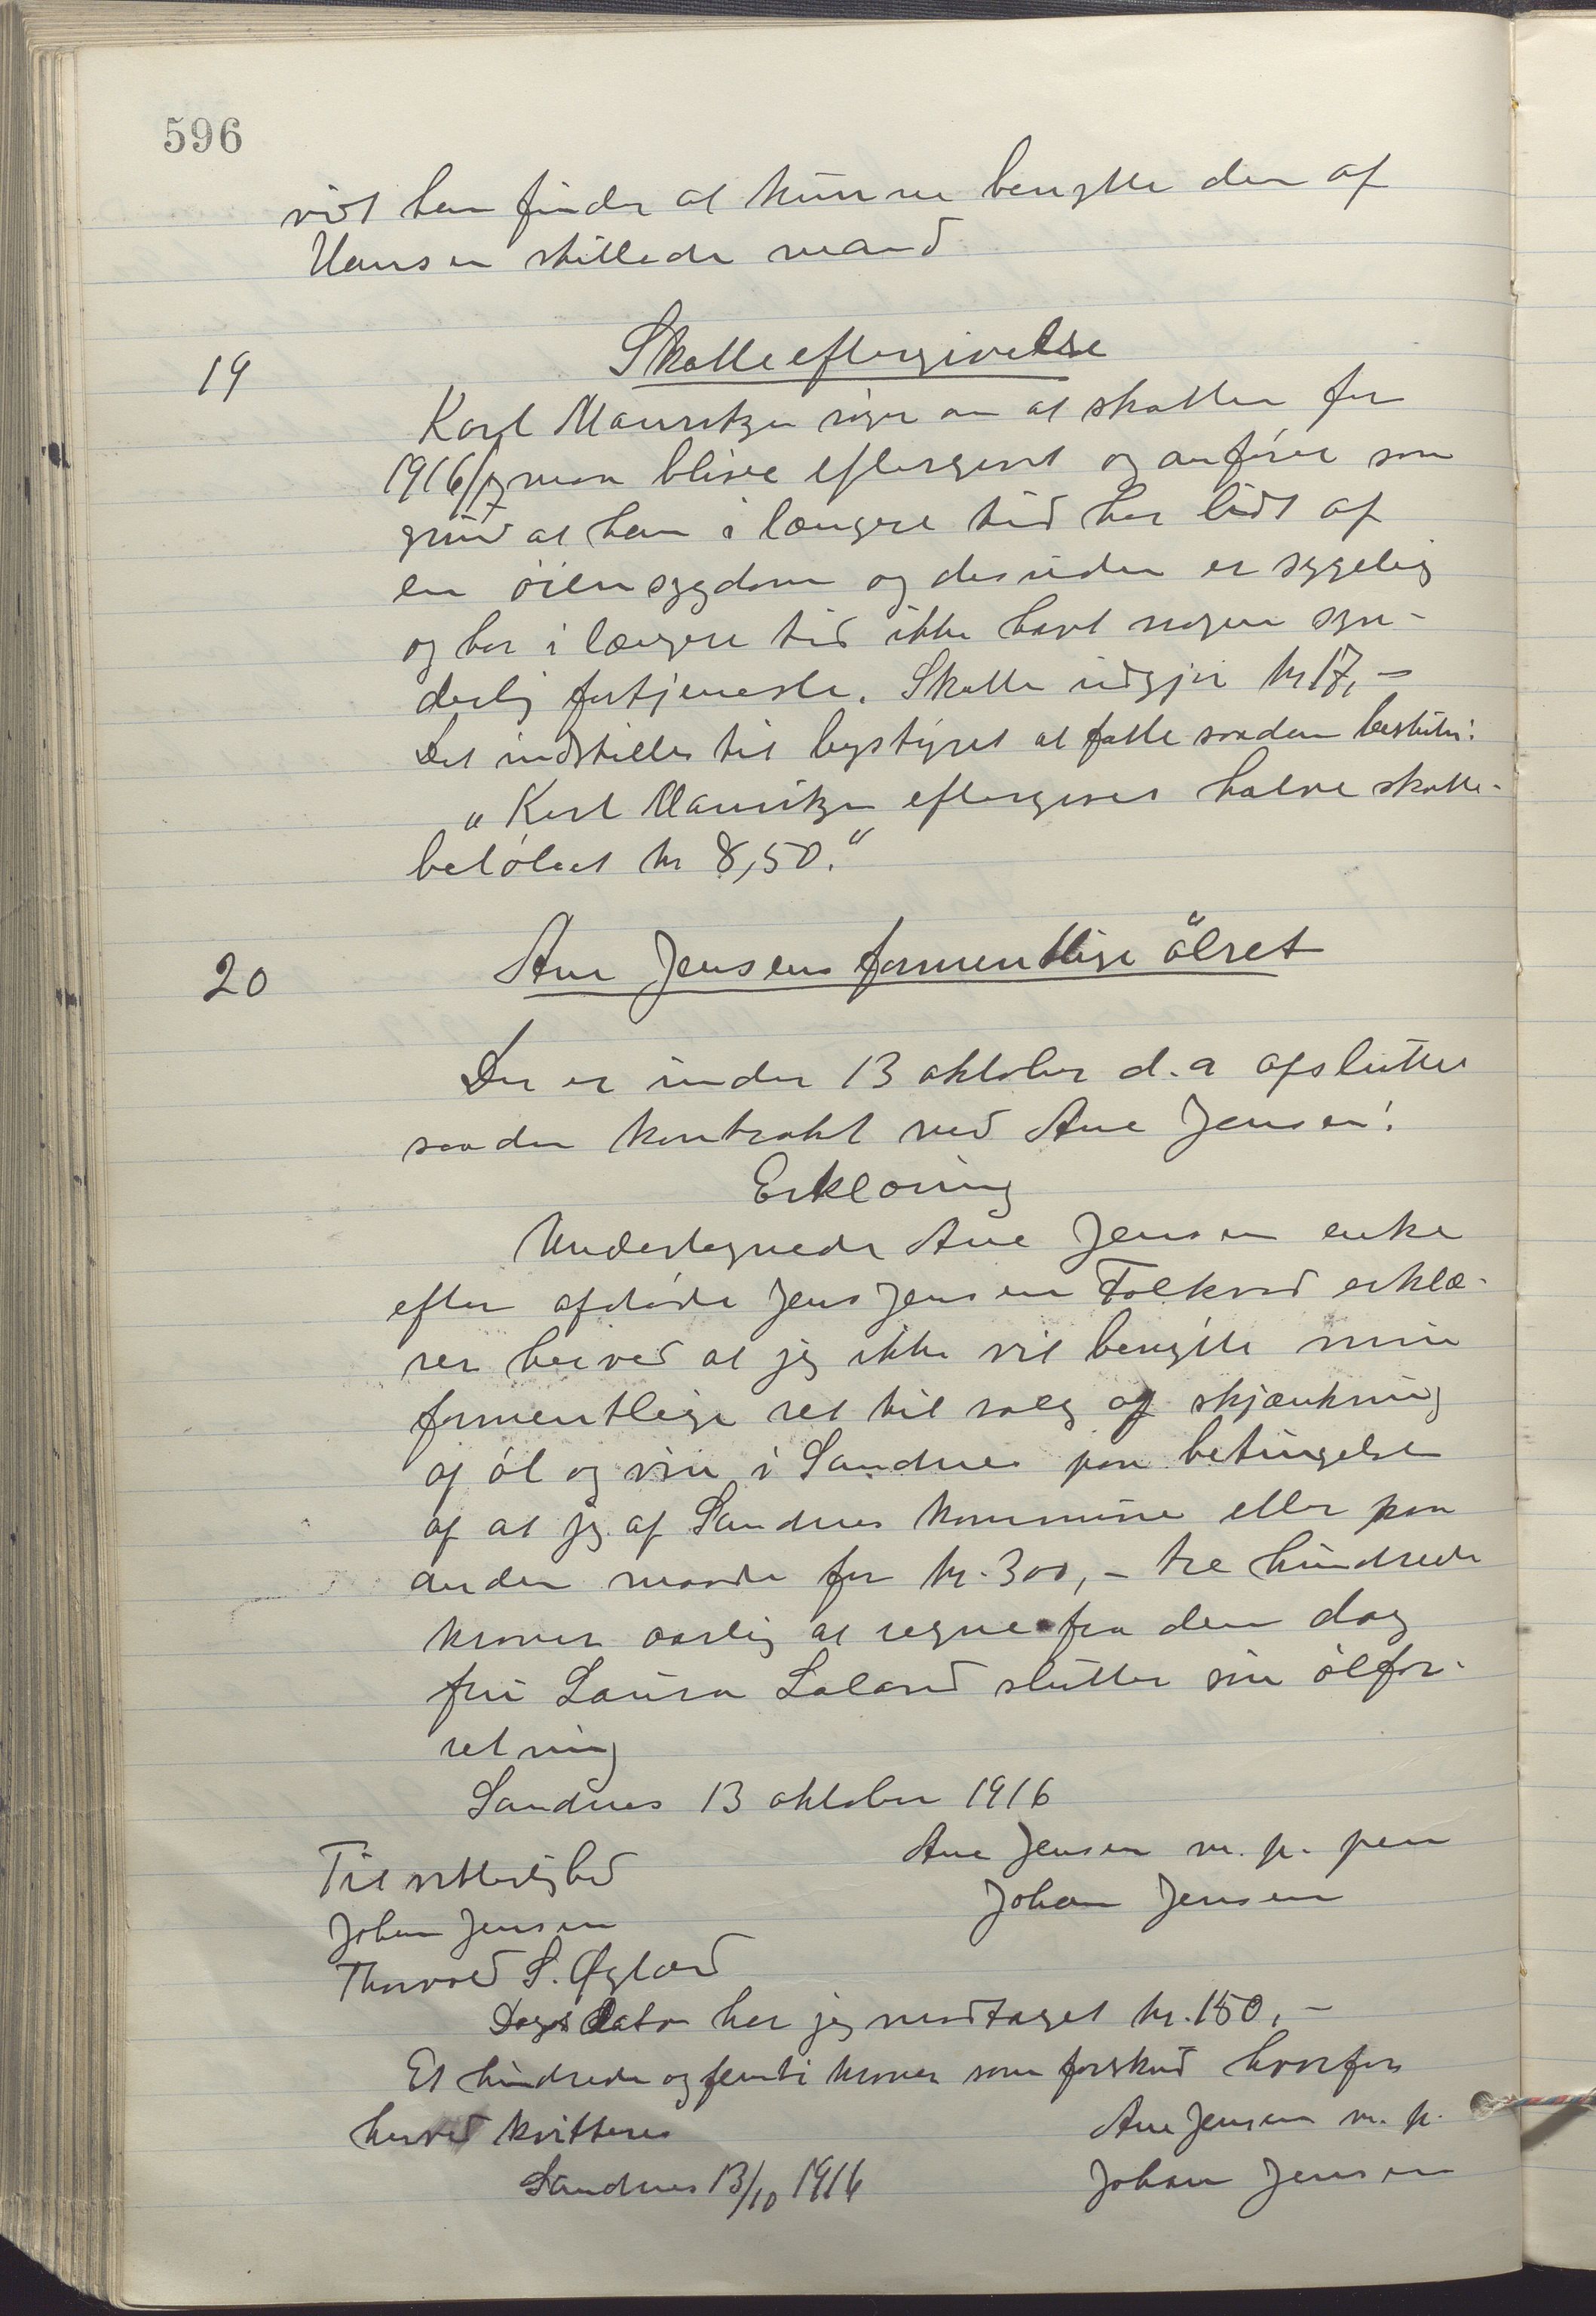 596
vidt han finder at kunne benytte den af
Hansen stillede mand
19 Skatteeftergivelse
Karl Mauritzen søger om at skatten for
1916/17 maa blive eftergivet og anfører som
grund at han i længere tid har lidt af
en öiensygdom og desuden er sygelig
og har i længere tid ikke havt nogen syn-
derlig fortjeneste. Skatten udgjør kr 17,-
Det indstilles til bystyret at fatte saadan beslutn:
"Karl Mauritzen eftergives halve skatte-
beløbet kr 8,50."
20 Ane Jensens formentlige ölret
Der er under 13 oktober d.a afsluttet
saadan kontrakt med Ane Jensen:
Erklæring
Undertegnede Ane Jensen enke
efter afdøde Jens Jensen Folkvord erklæ-
rer herved at jeg ikke vil benytte min
formentlige ret til salg og skjænkning
af öl og vin i Sandnes paa betingelse
af at jeg af Sandnes kommune eller paa
anden maade faar kr. 300,- tre hundrede
kroner aarlig at regne fra den dag
fru Laura Laland slutter sin ölfor-
retning
Sandnes 13 oktober 1916
Ane Jensen m. p. pen
Til vitterlighed Johan Jensen
Johan Jensen
Thorvald S. Øglænd
Dags dato har jeg modtaget kr. 150,-
Et hundrede og femti kroner som forskud hvorfor
herved kvitteres Ane Jensen m. p.
Sandnes 13/10 1916 Johan Jensen